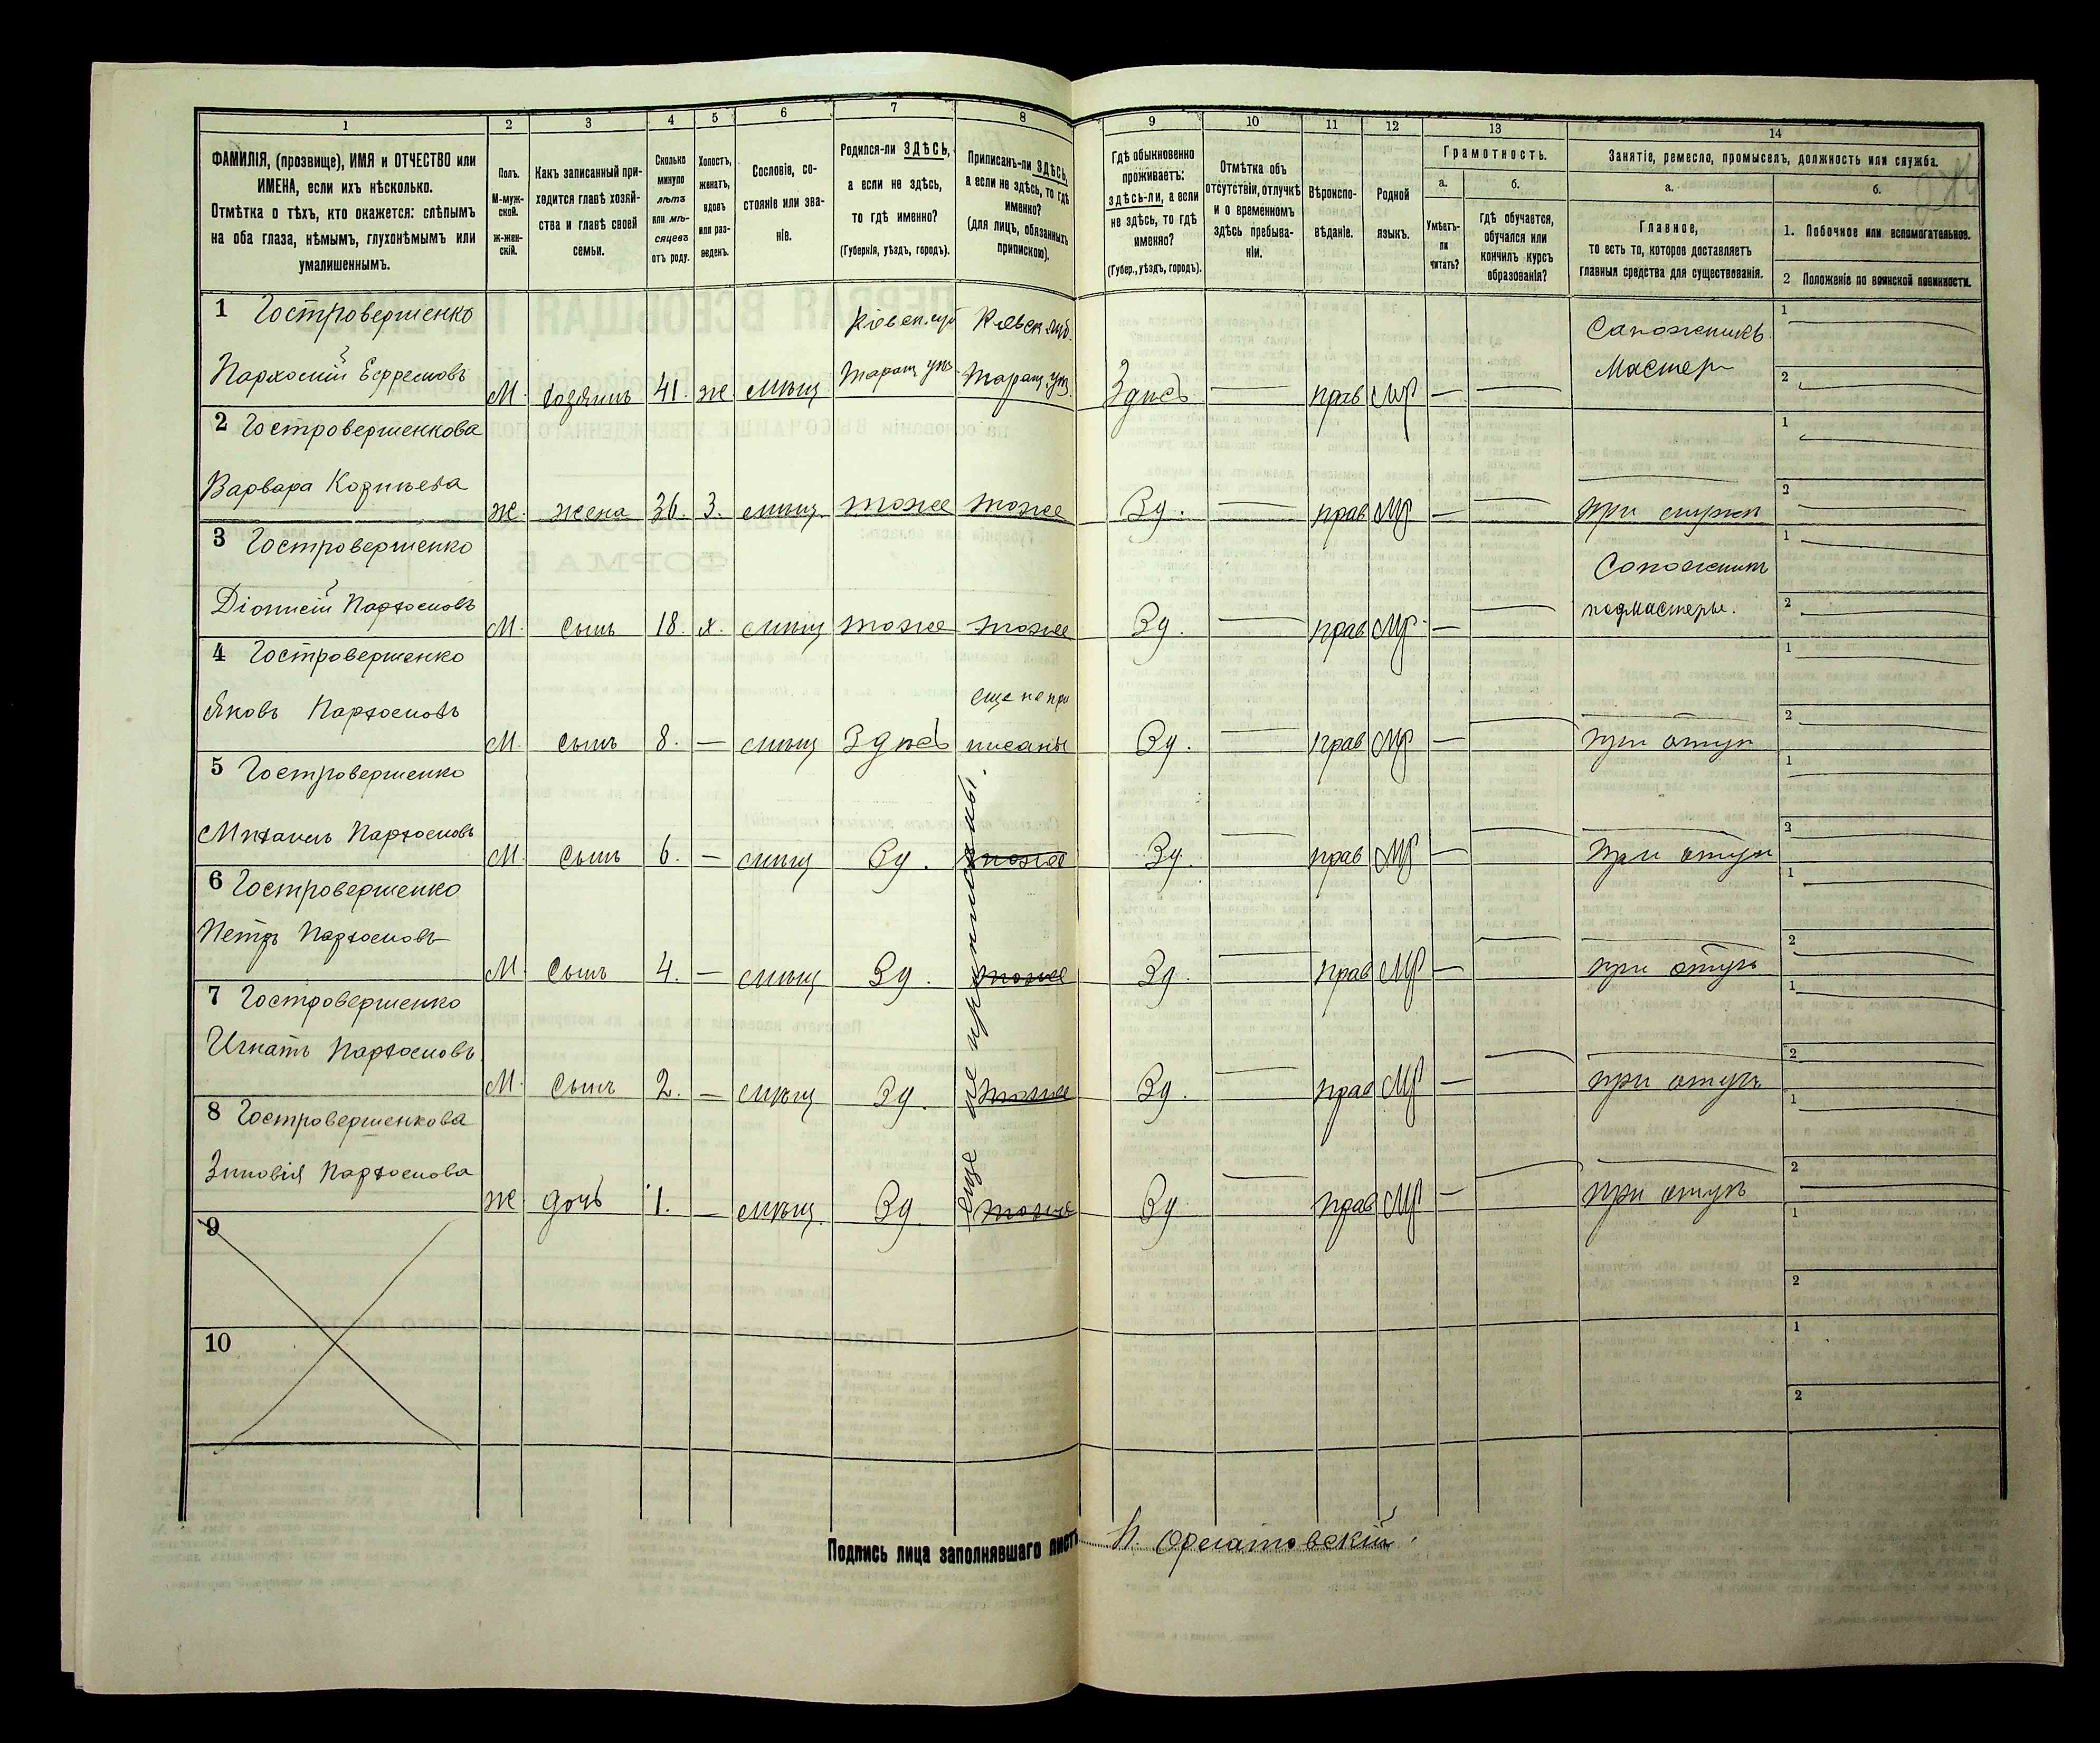 1 2 3 4 5 6 7 8 9 10 11 12 13 14
ФАМИЛІЯ, (прозвище), ИМЯ и ОТЧЕСТВО или
ИМЕНА, если ихъ нѣсколько.
Отмѣтка о тѣхъ, кто окажется: слѣпымъ
на оба глаза, нѣмымъ, глухонѣмымъ или
умалишеннымъ.
Полъ.
М-муж-
ской.
ж-жен-
скій.
Какъ записанный при-
ходится главѣ хозяй-
ства и главѣ своей
семьи.
Сколько
минуло
лѣтъ
или мѣ-
сяцевъ
отъ роду.
Холостъ,
женатъ,
вдовъ
или раз-
веденъ.
Сословіе, со-
стояніе или зва-
ніе.
Родился-ли ЗДѢСЬ,
а если не здѣсь,
то гдѣ именно?
(Губернія, уѣздъ, городъ).
Приписанъ-ли ЗДѢСЬ,
а если не здѣсь, то гдѣ
именно?
(для лицъ, обязанныхъ
припискою).
Гдѣ обыкновенно
проживаетъ:
здѣсь-ли, а если
не здѣсь, то гдѣ
именно?
(Губер., уѣздъ, городъ).
Отмѣтка объ
отсутствіи, отлучкѣ
и о временномъ
здѣсь пребыва-
ніи.
Вѣроиспо-
вѣданіе.
Родной
языкъ.
Грамотность.
а.
Умѣетъ-
ли
читать?
б.
гдѣ обучается,
обучался или
кончилъ курсъ
образованія?
Занятіе, ремесло, промыселъ, должность или служба.
а.
Главное,
то есть то, которое доставляетъ
главныя средства для существованія.
б.
1. Побочное или вспомогательное.
2 Положеніе по воинской повинности.
1 Гостровершенко Кіевск. губ Кіевск. губ. Сапожникъ 1
Пархомій Ефремовъ М. хозяинъ 41. ж мѣщ Таращ. уѣз. Таращ. уѣз. Здѣсь — прав Мр — — Мастер 2
2 Гостровершенкова 1
Варвара Козмьева ж. жена 36. З. мѣщ. тоже тоже Зд. — прав Мр — — при мужѣ 2
3 Гостровершенко Сапожникъ 1
Діонисій Парфомовъ М. сынъ 18. х. мѣщ тоже тоже Зд. — прав Мр. — — подмастерье. 2
4 Гостровершенко еще не при 1
Яковъ Парфомовъ М. сынъ 8. — мѣщ Здѣсь писаны Зд. — прав Мр — — при отцѣ 2
5 Гостровершенко 1
Михаилъ Парфомовъ М. сынъ 6. — мѣщ Зд. тоже Зд. — прав Мр — — при отцѣ 2
6 Гостровершенко 1
Петръ Парфомовъ М. сынъ 4. — мѣщ Зд. тоже Зд. — прав Мр — — при отцѣ 2
7 Гостровершенко 1
Игнатъ Парфомовъ М. сынъ 2. — мѣщ Зд. тоже Зд. — прав Мр — — при отцѣ 2
8 Гостровершенкова 1
Зиновія Парфомова ж дочь 1. — мѣщ. Зд. тоже Зд — прав Мр — — при отцѣ 2
еще не приписаны.
9 1
2
10 1
2
Подпись лица заполнявшаго листъ